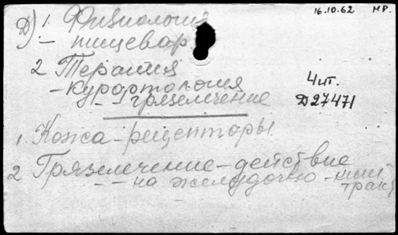 16.10.62 МР.
Д) 1. Физиология
— пищевар
2 Терапия
— курортология
— грязелечение
Чит.
Д27471
1 Кожа – рецепторы
2 Грязелечение – действие
— — на желудочно – киш
тракт